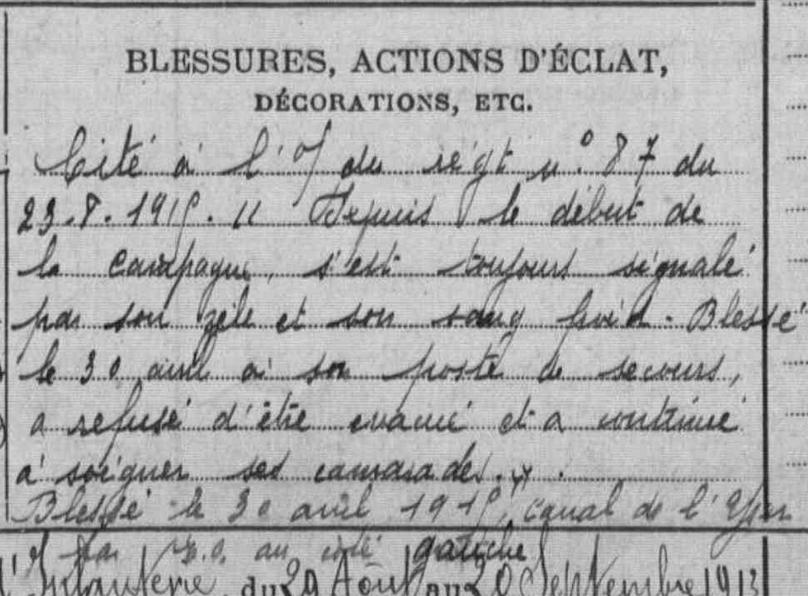 BLESSURES, ACTIONS D'ÉCLAT,
DÉCORATIONS, ETC.
Cité à l'o/ du régt n° 87 du
23.8.1915. " Depuis le début de
la campagne, s'est toujours signalé
par son zèle et son sang froid. Blessé
le 30 avril à son poste de secours,
a refusé d'être evacué et a continué
à soigner ses camarades. " .
Blessé le 30 avril 1915, canal de l'Yser
par au coté gauche
d'Infanterie, du 29 Août au 20 Septembre 1913